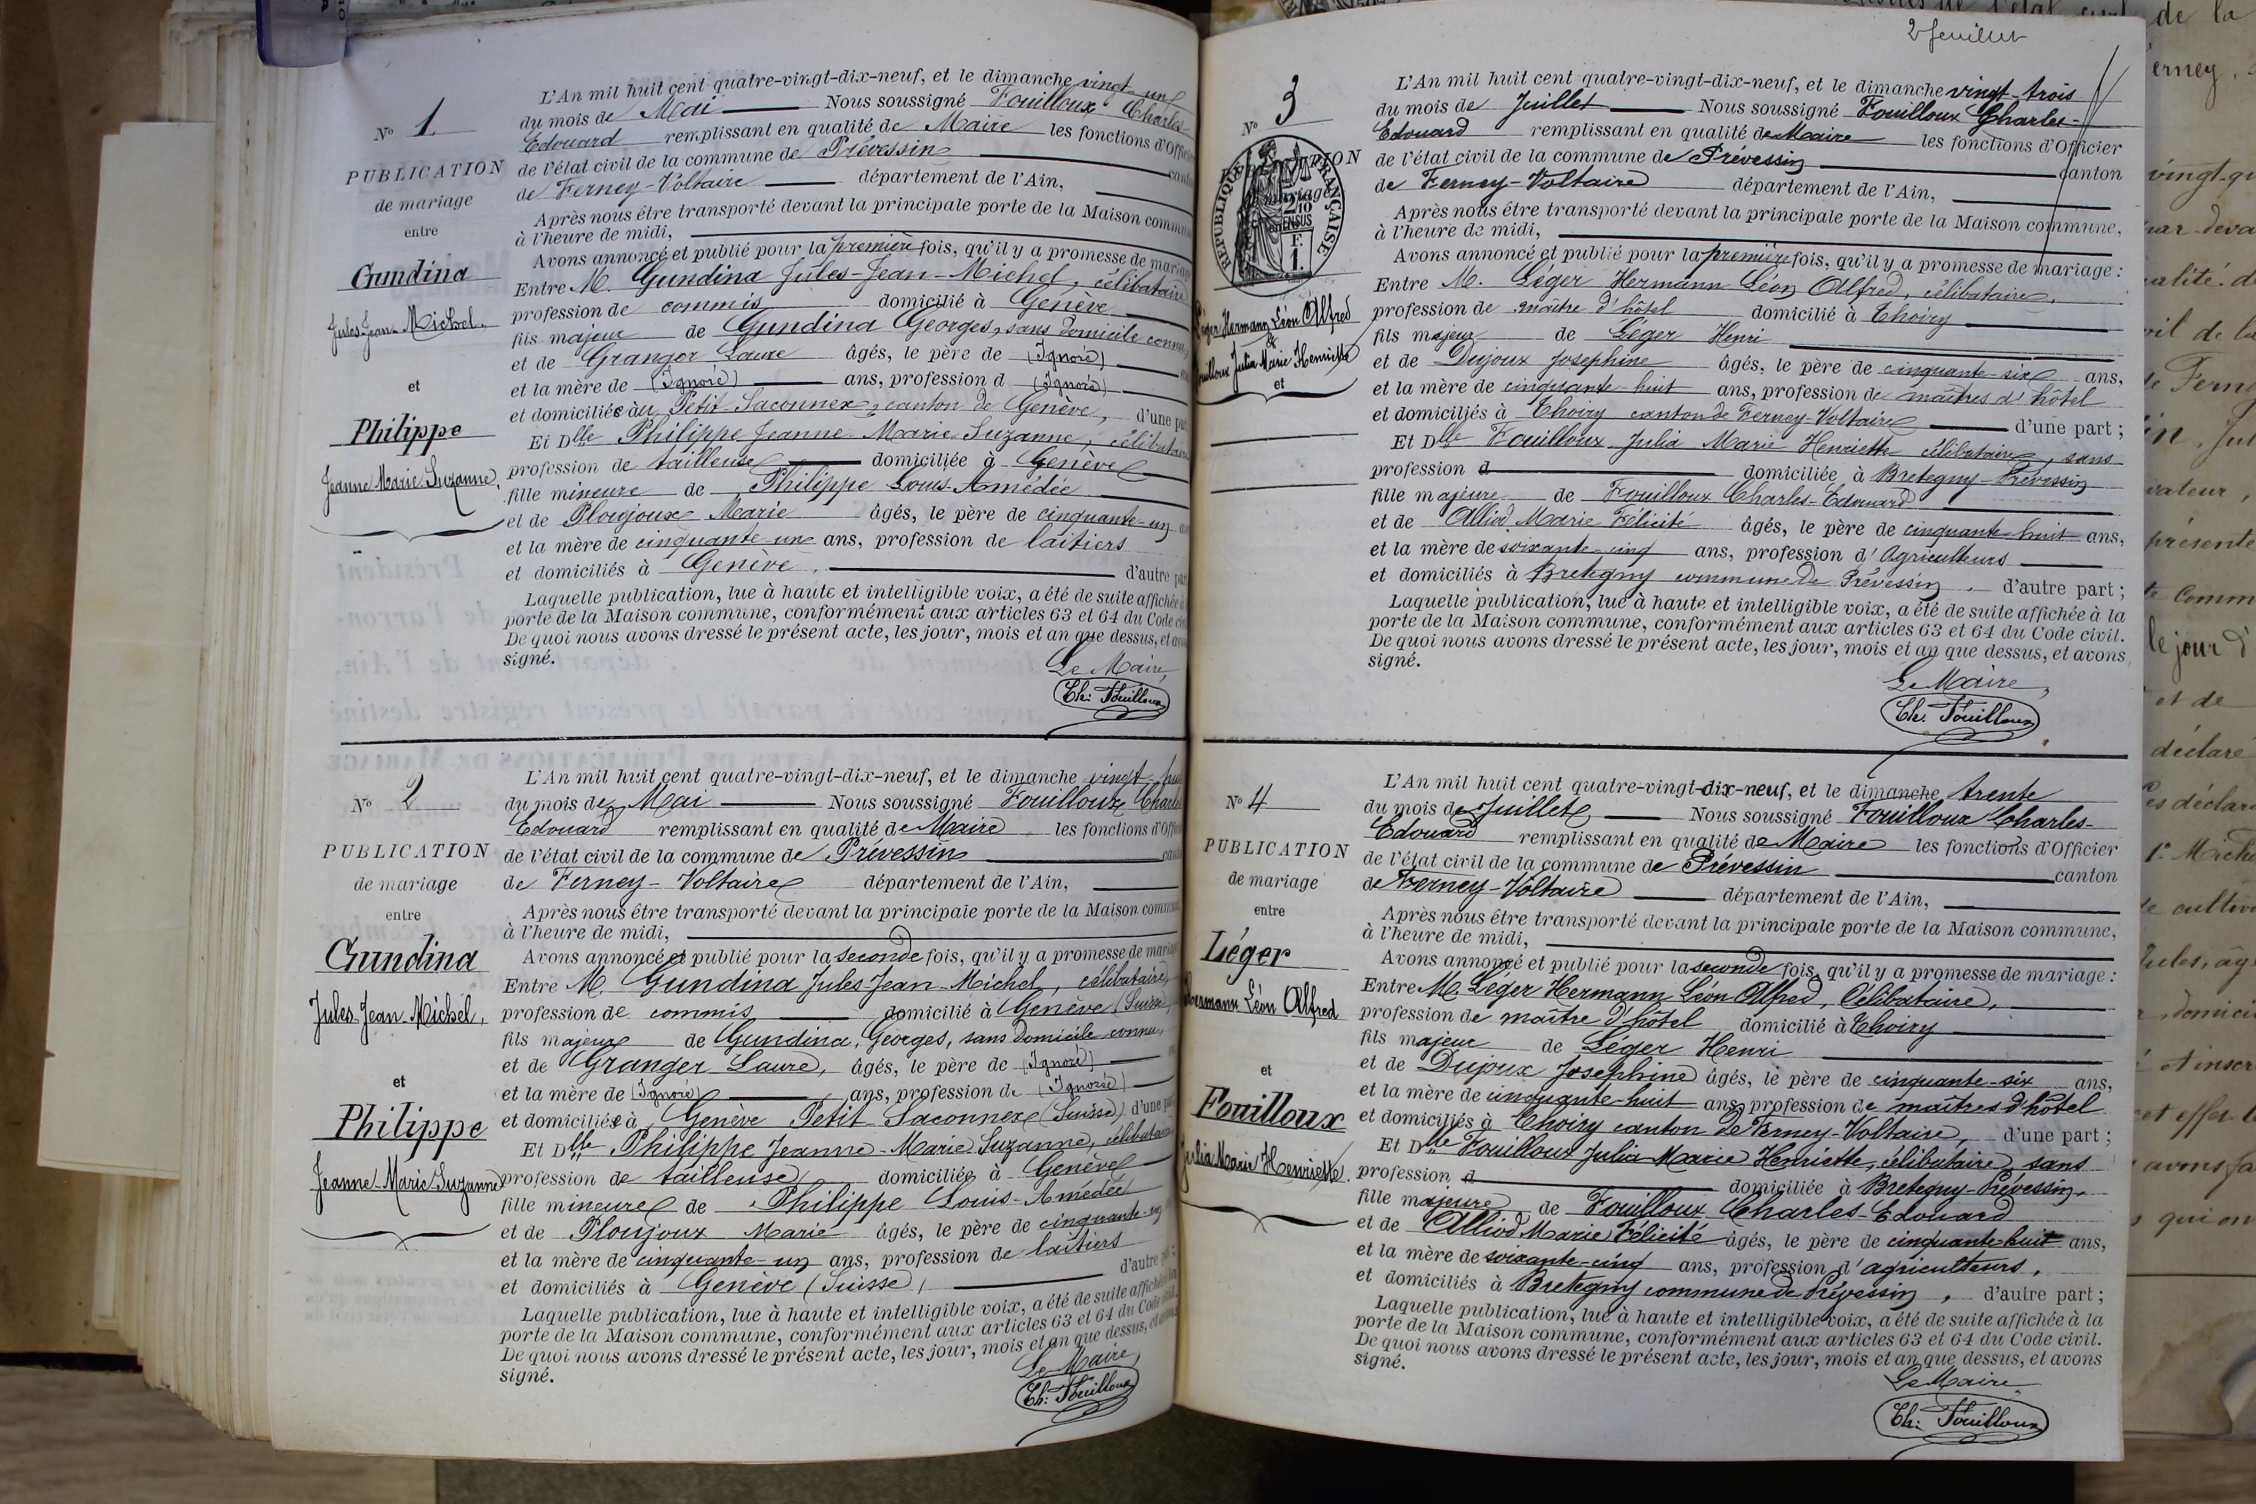 N° 1
PUBLICATION
de mariage
entre
Gundina
Jules-Jean-Michel,
et
Philippe
Jeanne Marie Suzanne,
L'An mil huit cent quatre-vingt-dix-neuf, et le dimanche vingt un
du mois de Mai Nous soussigné Fouilloux Charles-
Edouard remplissant en qualité de Maire les fonctions d'Officier
de l'état civil de la commune de Prévessin canton
de Ferney-Voltaire département de l'Ain,
Après nous être transporté devant la principale porte de la Maison commune
à l'heure de midi,
Avons annoncé et publié pour la première fois, qu'il y a promesse de mariage
Entre M. Gundina Jules-Jean-Michel, célibataire
profession de commis domicilié à Genève
fils majeur de Gundina Georges, sans domicile connu,
et de Granger Laure âgés, le père de (Ignoré)
et la mère de (Ignoré) ans, profession d (Ignoré)
et domiciliés au Petit-Saconnex, canton de Genève, d'une part
Et Dlle Philippe Jeanne-Marie-Suzanne, célibataire
profession de tailleuse domiciliée à Genève
fille mineure de Philippe Louis-Amédée
et de Ploujoux Marie âgés, le père de cinquante-un
et la mère de cinquante-un ans, profession de laitiers
et domiciliés à Genève, d'autre part
Laquelle publication, lue à haute et intelligible voix, a été de suite affichée à
porte de la Maison commune, conformément aux articles 63 et 64 du Code civil
De quoi nous avons dressé le présent acte, les jour, mois et an que dessus, et avons
signé.
Le Maire,
Ch: Fouilloux
N° 2
PUBLICATION
de mariage
entre
Gundina
Jules-Jean-Michel,
et
Philippe
Jeanne-Marie-Suzanne
L'An mil huit cent quatre-vingt-dix-neuf, et le dimanche vingt-huit
du mois de Mai Nous soussigné Fouilloux Charles
Edouard remplissant en qualité de Maire les fonctions d'Officier
de l'état civil de la commune de Prévessin canton
de Ferney-Voltaire département de l'Ain,
Après nous être transporté devant la principale porte de la Maison commune
à l'heure de midi,
Avons annoncé et publié pour la seconde fois, qu'il y a promesse de mariage
Entre M. Gundina Jules Jean-Michel, célibataire,
profession de commis domicilié à Genève (Suisse)
fils majeur de Gundina, Georges, sans domicile connu,
et de Granger Laure, âgés, le père de (Ignoré)
et la mère de (Ignoré) ans, profession de (Ignoré)
et domiciliés à Genève Petit Saconnex (Suisse) d'une part
Et Dlle Philippe Jeanne-Marie Suzanne, célibataire
profession de tailleuse domiciliée à Genève
fille mineure de Philippe Louis-Amédée
et de Ploujoux Marie âgés, le père de cinquante-un
et la mère de cinquante-un ans, profession de laitiers
et domiciliés à Genève (Suisse), d'autre part
Laquelle publication, lue à haute et intelligible voix, a été de suite affichée à la
porte de la Maison commune, conformément aux articles 63 et 64 du Code civil.
De quoi nous avons dressé le présent acte, les jour, mois et an que dessus, et avons
signé.
Le Maire,
Ch: Fouilloux
2e feuillet
N° 3
RÉPUBLIQUE FRANÇAISE
2/10
EN SUS
F.
1.
Léger Hermann Léon Alfred
&
Fouilloux Julia Marie Henriette
et
L'An mil huit cent quatre-vingt-dix-neuf, et le dimanche vingt-trois
du mois de Juillet Nous soussigné Fouilloux Charles-
Edouard remplissant en qualité de Maire les fonctions d'Officier
de l'état civil de la commune de Prévessin canton
de Ferney-Voltaire département de l'Ain,
Après nous être transporté devant la principale porte de la Maison commune,
à l'heure de midi,
Avons annoncé et publié pour la première fois, qu'il y a promesse de mariage :
Entre M. Léger Hermann Léon Alfred, célibataire,
profession de maître d'hôtel domicilié à Thoiry
fils majeur de Léger Henri
et de Dujoux Joséphine âgés, le père de cinquante-six ans,
et la mère de cinquante-huit ans, profession de maîtres d'hôtel
et domiciliés à Thoiry canton de Ferney-Voltaire d'une part ;
Et Dlle Fouilloux Julia Marie Henriette célibataire, sans
profession d domiciliée à Bretegny-Prévessin
fille majeure de Fouilloux Charles-Edouard
et de Alliod Marie Félicité âgés, le père de cinquante-huit ans,
et la mère de soixante-cinq ans, profession d'Agriculteurs
et domiciliés à Bretegny commune de Prévessin, d'autre part ;
Laquelle publication, lue à haute et intelligible voix, a été de suite affichée à la
porte de la Maison commune, conformément aux articles 63 et 64 du Code civil.
De quoi nous avons dressé le présent acte, les jour, mois et an que dessus, et avons
signé.
Le Maire,
Ch. Fouilloux
N° 4
PUBLICATION
de mariage
entre
Léger
Hermann Léon Alfred
et
Fouilloux
Julia Marie Henriette.
L'An mil huit cent quatre-vingt-dix-neuf, et le dimanche trente
du mois de Juillet Nous soussigné Fouilloux Charles-
Edouard remplissant en qualité de Maire les fonctions d'Officier
de l'état civil de la commune de Prévessin canton
de Ferney-Voltaire département de l'Ain,
Après nous être transporté devant la principale porte de la Maison commune,
à l'heure de midi,
Avons annoncé et publié pour la seconde fois, qu'il y a promesse de mariage :
Entre M. Léger Hermann Léon Alfred, Célibataire,
profession de maître d'hôtel domicilié à Thoiry
fils majeur de Léger Henri
et de Dujoux Joséphine âgés, le père de cinquante-six ans,
et la mère de cinquante-huit ans, profession de maîtres d'hôtel
et domiciliés à Thoiry canton de Ferney-Voltaire, d'une part ;
Et Dlle Fouilloux Julia-Marie Henriette, célibataire, sans
profession d domiciliée à Bretegny-Prévessin,
fille majeure de Fouilloux Charles-Edouard
et de Alliod Marie Félicité âgés, le père de cinquante-huit ans,
et la mère de soixante-cinq ans, profession d'agriculteurs,
et domiciliés à Bretegny commune de Prévessin, d'autre part ;
Laquelle publication, lue à haute et intelligible voix, a été de suite affichée à la
porte de la Maison commune, conformément aux articles 63 et 64 du Code civil.
De quoi nous avons dressé le présent acte, les jour, mois et an que dessus, et avons
signé.
Le Maire,
Ch: Fouilloux